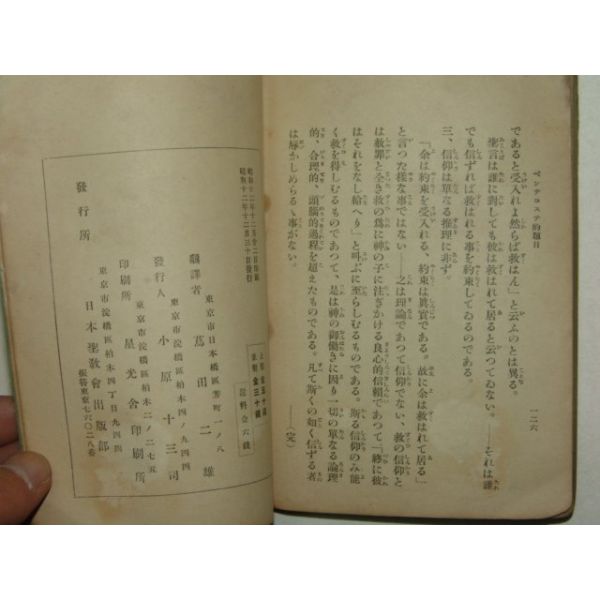 ペンテコステ的題目
一二六
であると受入れよ然らば救はん」と云ふのとは異る。
聖言は誰に對しても彼は救はれて居ると云つてゐない。――それは誰
でも信ずれば救はれる事を約束してゐるのである。
三、信仰は單なる推理に非ず。
「余は約束を受入れる、約束は眞實である。故に余は救はれて居る」
と言つた樣な事ではない――之は理論であつて信仰でない、救の信仰と
は救罪と全き救の爲に神の子に注ぎかける良心的信賴であつて「終に彼
はそれをなし給へり」と叫ぶに至らしむるものである。斯る信仰のみ能
く救を得しむるものであつて、是は神の御働きに因り一切の單なる論理
的、合理的、頭腦的過程を超えたものである。凡て斯くの如く信ずる者
は辱かしめらるゝ事がない。
――(完)
昭和十二年十二月三十日發行
金三十錢
送料金六錢
飜譯者
東京市日本橋區芳町一ノ八
蔦田二雄
東京市淀橋區柏木四ノ九四四
發行人
小原十三司
東京市淀橋區柏木二ノ二七五
印刷所
星光舍印刷所
東京市淀橋區柏木四丁目九四四
發行所
日本聖敎會出版部
振替東京七六〇二八番